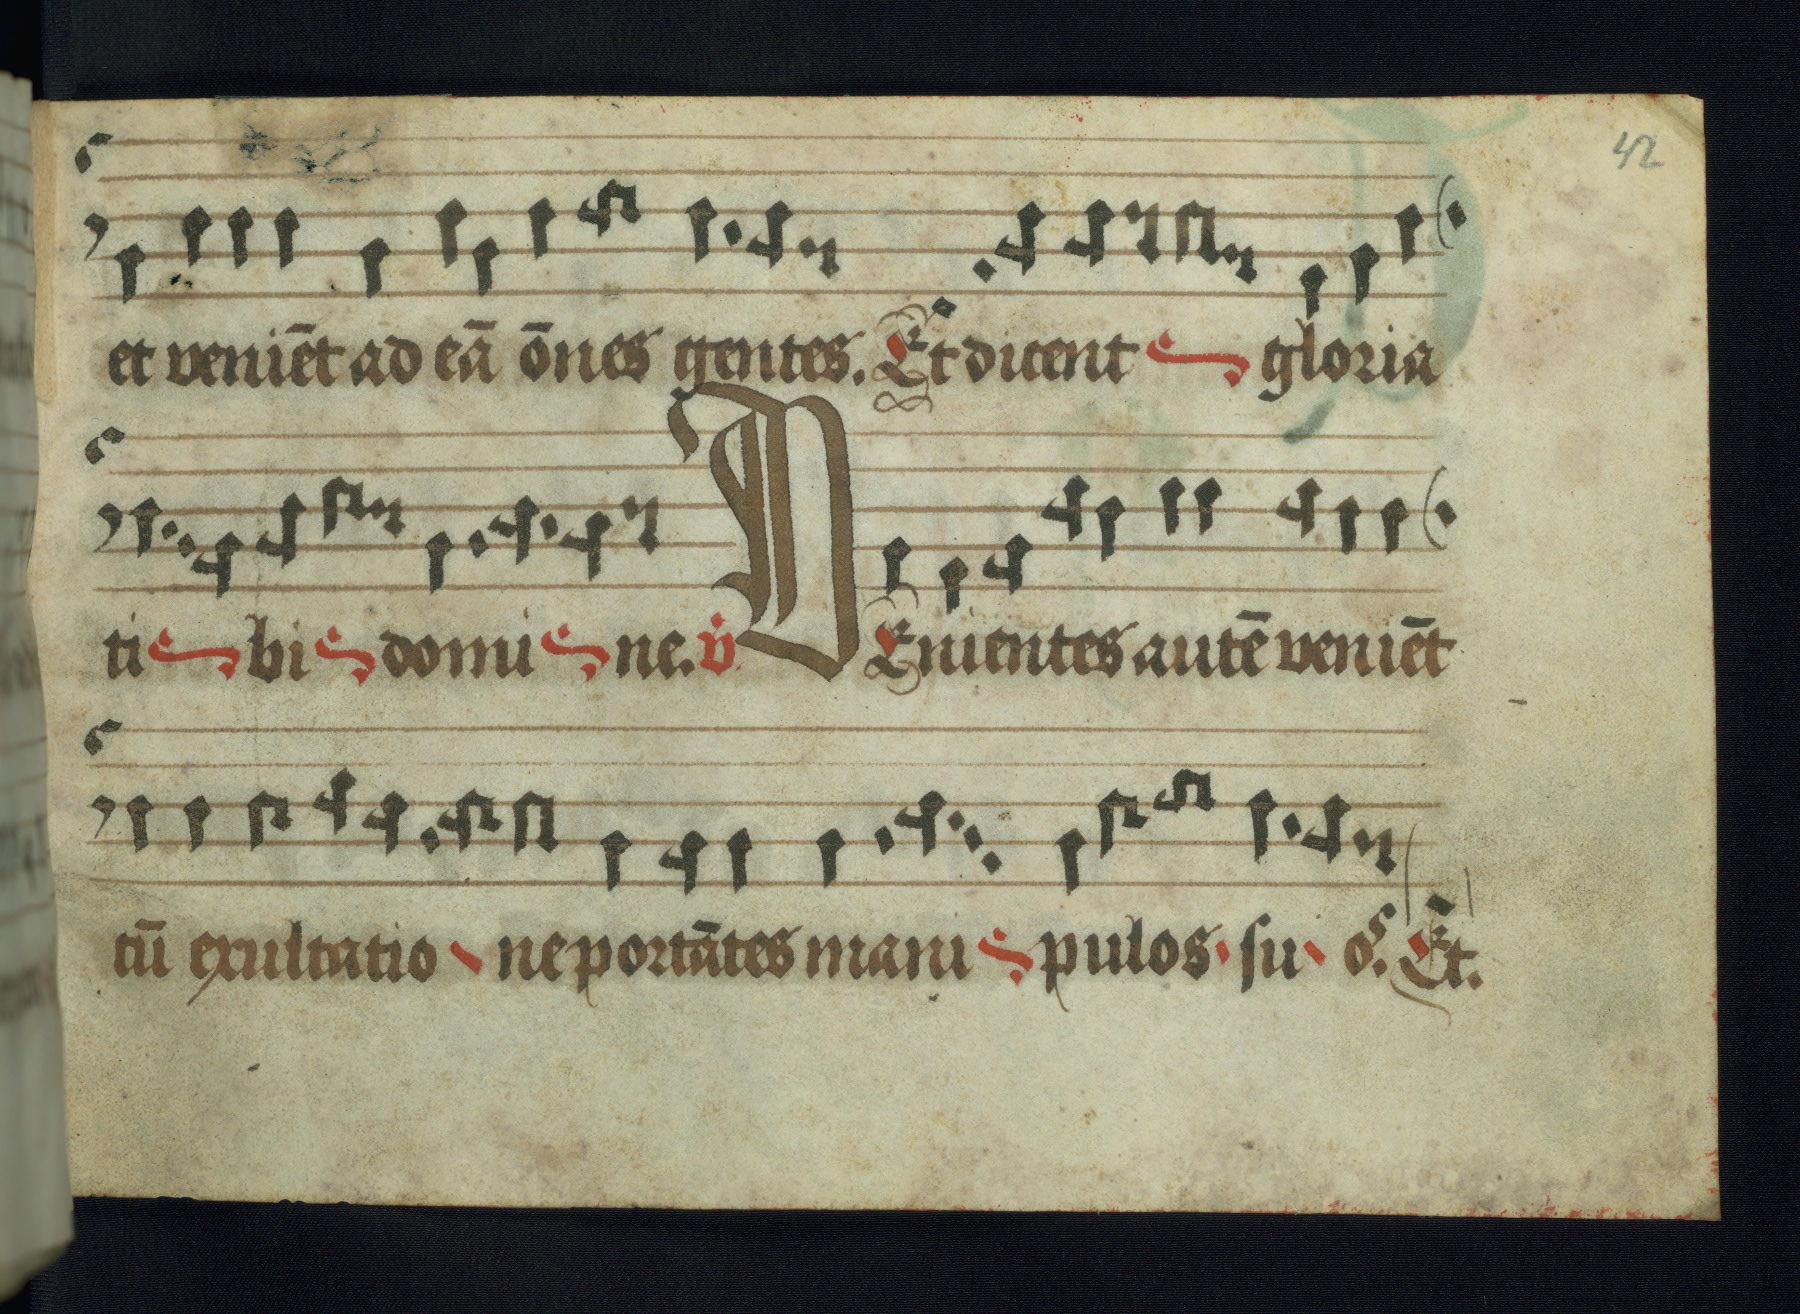 42
et veniēt ad eā ōnes gentes. Et dicent gloria
ti bi domi ne. v̄
VEnientes autē veniēt
cū exultatio ne portātes mani pulos su os. Et.